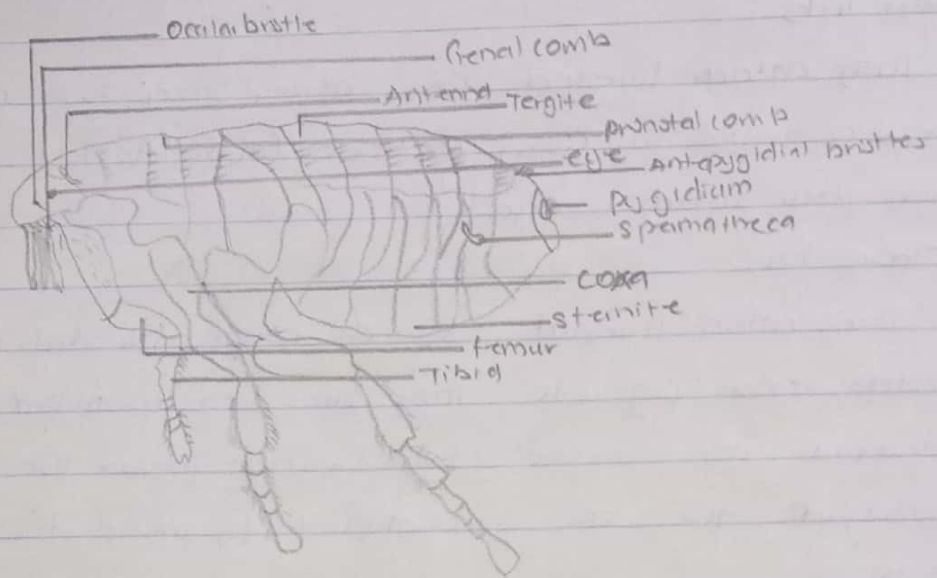 Occular bristle
Genal comb
Antenna
Tergite
pronotal comb
eye
Antepygidial bristles
pygidium
spermatheca
coxa
sternite
femur
Tibia